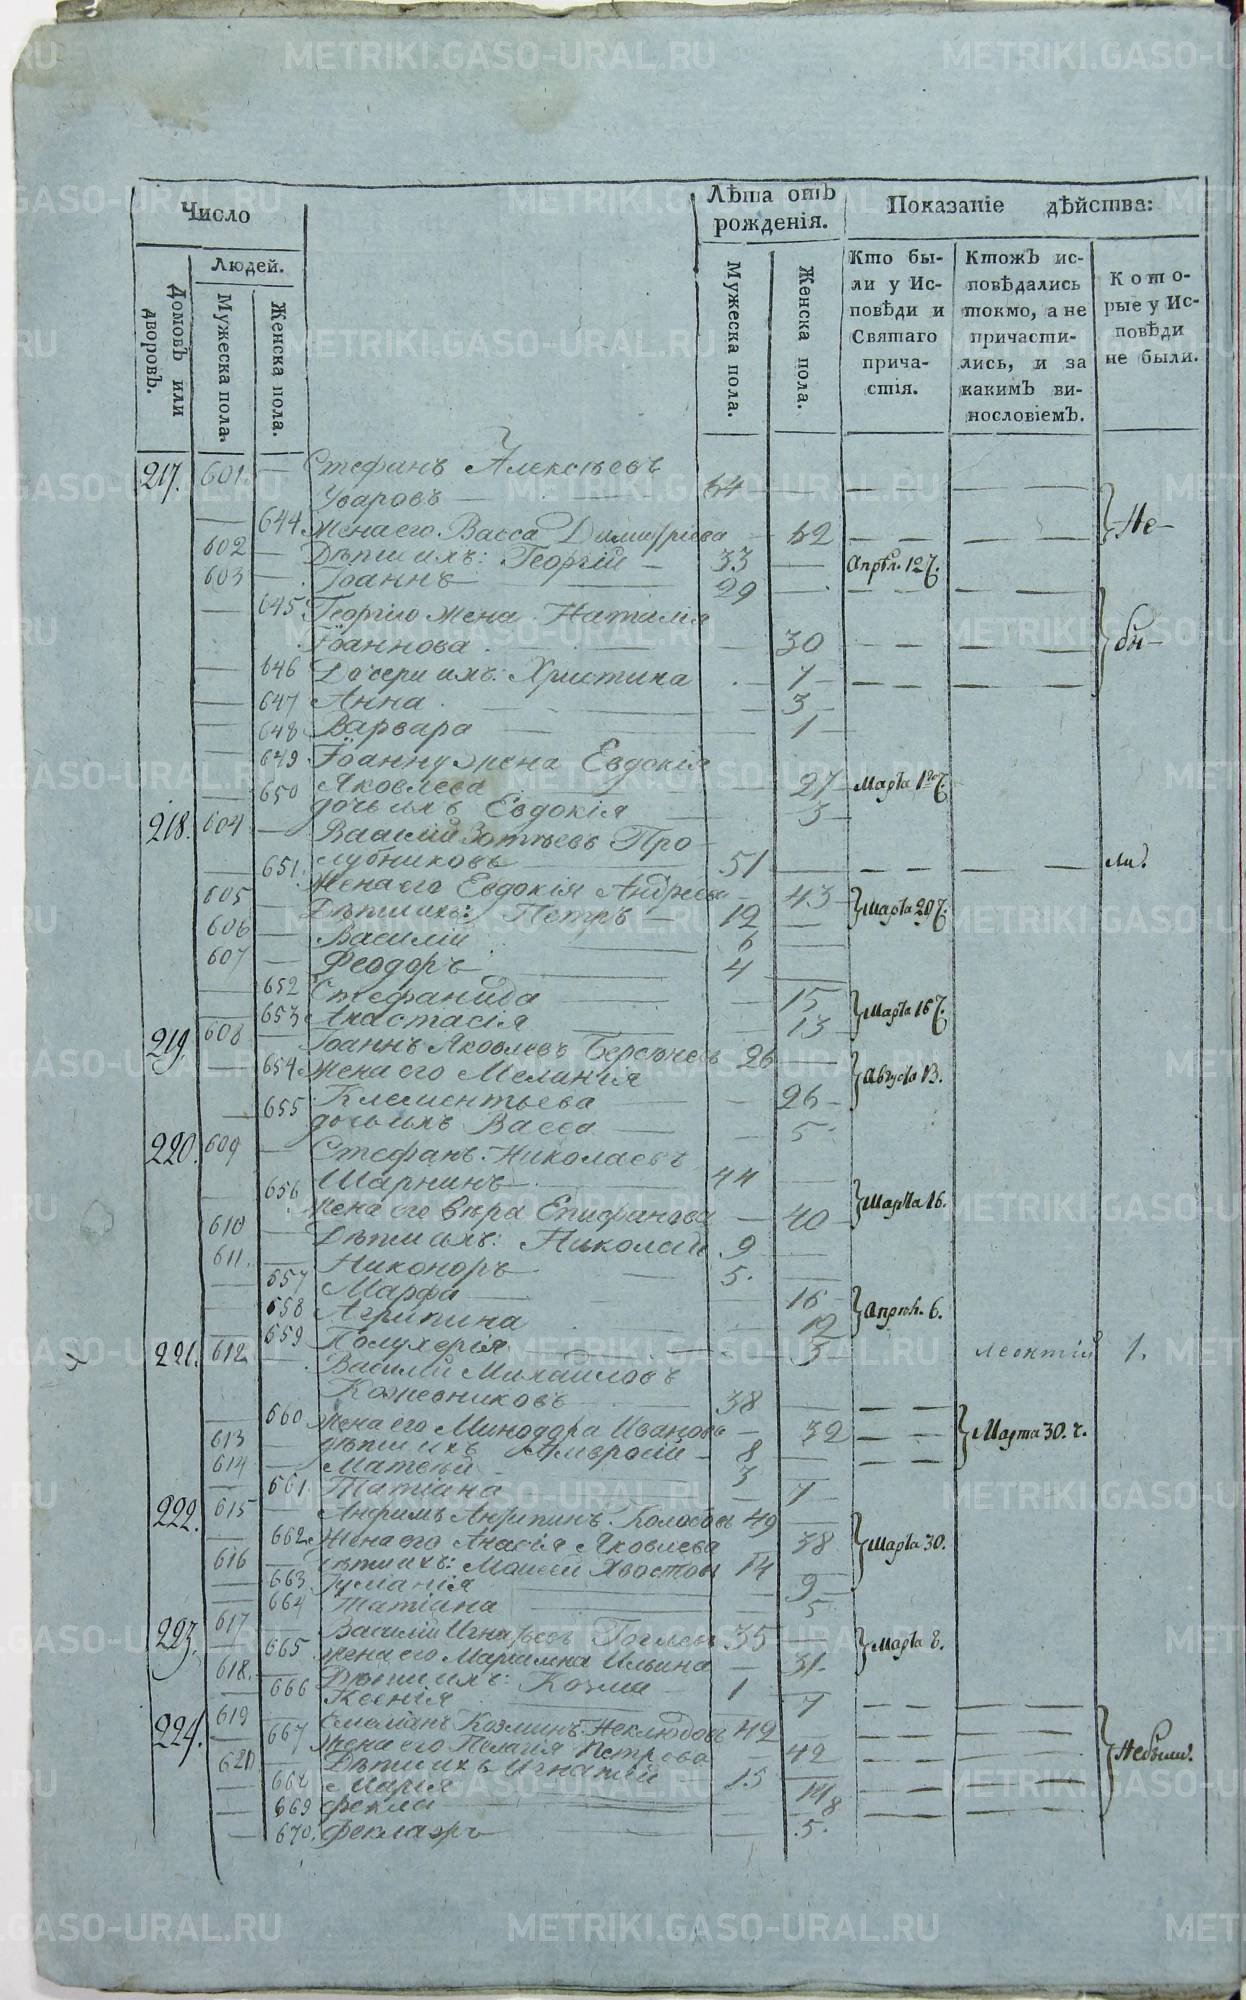 Число
Людей.
Домовъ или дворовъ.
Мужеска пола.
Женска пола.
Лѣта отъ рожденія.
Мужеска пола.
Женска пола.
Показаніе дѣйства:
Кто бы-
ли у Ис-
повѣди и
Святаго
прича-
стія.
Ктожъ ис-
повѣдались
токмо, а не
причасти-
лись, и за
какимъ ви-
нословіемъ.
Кото-
рые у Ис-
повѣди
не были.
217. 601 — Стефанъ Алексѣевъ
Уваровъ — 54 — Не-
— 644 Жена его Васса Димитріева — 52
602 — Дѣти ихъ: Георгій — 33 — Апрѣл. 12
603 — Іоаннъ 29
— 645 Георгію жена Наталія
Іоаннова 30 бы-
— 646 Дочери ихъ: Христина 7
— 647 Анна 3
— 648 Варвара 1
— 649 Іоанну жена Евдокія
Яковлева 27 Марта 12
— 650 дочь ихъ Евдокія 3
218. 604 — Василій Зотѣевъ Про-
лубниковъ 51 ли.
— 651 Жена его Евдокія Андреева — 43
605 — Дѣти ихъ: Петръ — 12 — Марта 20
606 — Василій 6
607 — Феодоръ 4
— 652 Стефанида 15 Марта 16
— 653 Анастасія 13
219. 608 — Іоаннъ Яковлевъ 26
— 654 Жена его Меланія Августа 13.
Клементьева 26
— 655 дочь ихъ Васса 5
220. 609 — Стефанъ Николаевъ
Шарнинъ 44
— 656 Жена его Вѣра Епифанова — 40 Марта 16.
610 — Дѣти ихъ: Николай 9
611. — Никоноръ 5.
— 657 Марфа 16 Апрѣл. 6.
— 658 Агрипина 12
— 659 Полухерія 3
221. 612 — Василій Михаиловъ леонтій 1.
Кожевниковъ 38
— 660 Жена его Минодора Иванова — 32 Марта 30. ч.
613 — дѣти ихъ Амвросій — 8
614 — Матвѣй 3
— 661 Татіана 7
222. 615 — 49
— 662 Жена его Яковлева 38 Марта 30.
616 — Дѣти ихъ: Моисей 14
— 663 9
— 664 Татіана 5
223. 617 — Василій 35
— 665 Жена его Ильина — 31. Марта 8.
618. — Дѣти ихъ: Козма — 1
— 666 Ксенія 7
224. 619 — Козминъ Неклюдовъ 42
— 667 Жена его Пелагія Петрова — 42 Небыли.
620 — Дѣти ихъ Игнатій 15
— 668 Марія 14
— 669 Фекла 8
— 670. 5.
METRIKI.GASO-URAL.RU